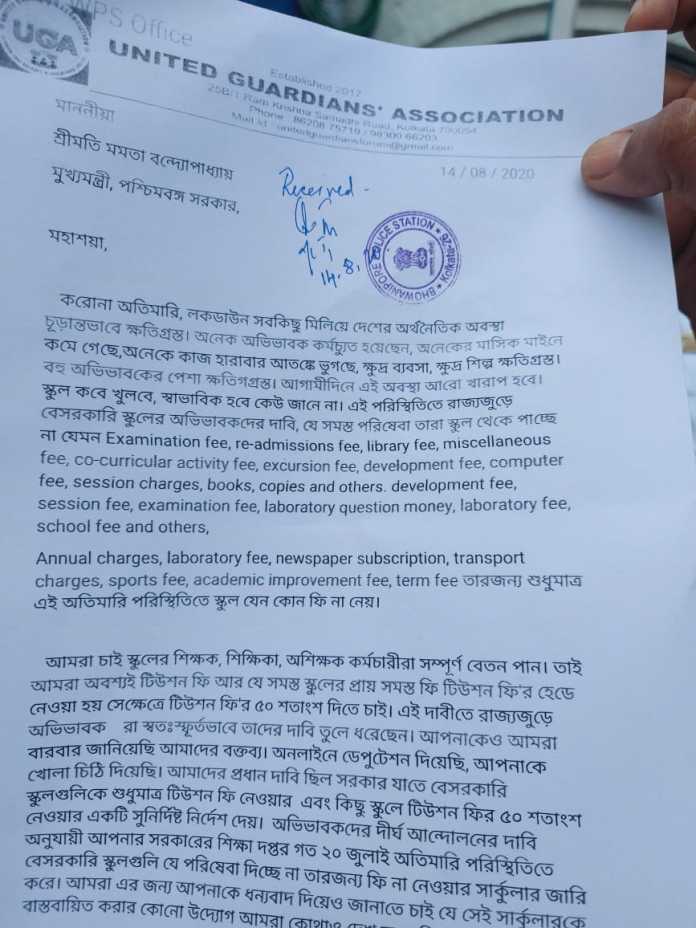 WPS Office
UGA
UNITED GUARDIANS' ASSOCIATION
Established 2017
25B/1 Ram Krishna Samadhi Road, Kolkata 700054
Phone : 86208 75719 / 98300 66203
Mail id : unitedguardiansforum@gmail.com
14 / 08 / 2020
মাননীয়া
শ্রীমতি মমতা বন্দ্যোপাধ্যায়
মুখ্যমন্ত্রী, পশ্চিমবঙ্গ সরকার,
Received -
14.8.
BHOWANIPORE POLICE STATION
Kolkata-26
মহাশয়া,
করোনা অতিমারি, লকডাউন সবকিছু মিলিয়ে দেশের অর্থনৈতিক অবস্থা
চূড়ান্তভাবে ক্ষতিগ্রস্ত। অনেক অভিভাবক কর্মচ্যুত হয়েছেন, অনেকের মাসিক মাইনে
কমে গেছে,অনেকে কাজ হারাবার আতঙ্কে ভুগছে, ক্ষুদ্র ব্যবসা, ক্ষুদ্র শিল্প ক্ষতিগ্রস্ত।
বহু অভিভাবকের পেশা ক্ষতিগগ্রস্ত। আগামীদিনে এই অবস্থা আরো খারাপ হবে।
স্কুল কবে খুলবে, স্বাভাবিক হবে কেউ জানে না। এই পরিস্থিতিতে রাজ্যজুড়ে
বেসরকারি স্কুলের অভিভাবকদের দাবি, যে সমস্ত পরিষেবা তারা স্কুল থেকে পাচ্ছে
না যেমন Examination fee, re-admissions fee, library fee, miscellaneous
fee, co-curricular activity fee, excursion fee, development fee, computer
fee, session charges, books, copies and others. development fee,
session fee, examination fee, laboratory question money, laboratory fee,
school fee and others,
Annual charges, laboratory fee, newspaper subscription, transport
charges, sports fee, academic improvement fee, term fee তারজন্য শুধুমাত্র
এই অতিমারি পরিস্থিতিতে স্কুল যেন কোন ফি না নেয়।
আমরা চাই স্কুলের শিক্ষক, শিক্ষিকা, অশিক্ষক কর্মচারীরা সম্পূর্ণ বেতন পান। তাই
আমরা অবশ্যই টিউশন ফি আর যে সমস্ত স্কুলের প্রায় সমস্ত ফি টিউশন ফি'র হেডে
নেওয়া হয় সেক্ষেত্রে টিউশন ফি'র ৫০ শতাংশ দিতে চাই। এই দাবীতে রাজ্যজুড়ে
অভিভাবক রা স্বতঃস্ফূর্তভাবে তাদের দাবি তুলে ধরেছেন। আপনাকেও আমরা
বারবার জানিয়েছি আমাদের বক্তব্য। অনলাইনে ডেপুটেশন দিয়েছি, আপনাকে
খোলা চিঠি দিয়েছি। আমাদের প্রধান দাবি ছিল সরকার যাতে বেসরকারি
স্কুলগুলিকে শুধুমাত্র টিউশন ফি নেওয়ার এবং কিছু স্কুলে টিউশন ফির ৫০ শতাংশ
নেওয়ার একটি সুনির্দিষ্ট নির্দেশ দেয়। অভিভাবকদের দীর্ঘ আন্দোলনের দাবি
অনুযায়ী আপনার সরকারের শিক্ষা দপ্তর গত ২০ জুলাই অতিমারি পরিস্থিতিতে
বেসরকারি স্কুলগুলি যে পরিষেবা দিচ্ছে না তারজন্য ফি না নেওয়ার সার্কুলার জারি
করে। আমরা এর জন্য আপনাকে ধন্যবাদ দিয়েও জানাতে চাই যে সেই সার্কুলারকে
বাস্তবায়িত করার কোনো উদ্যোগ আমরা কোথাও